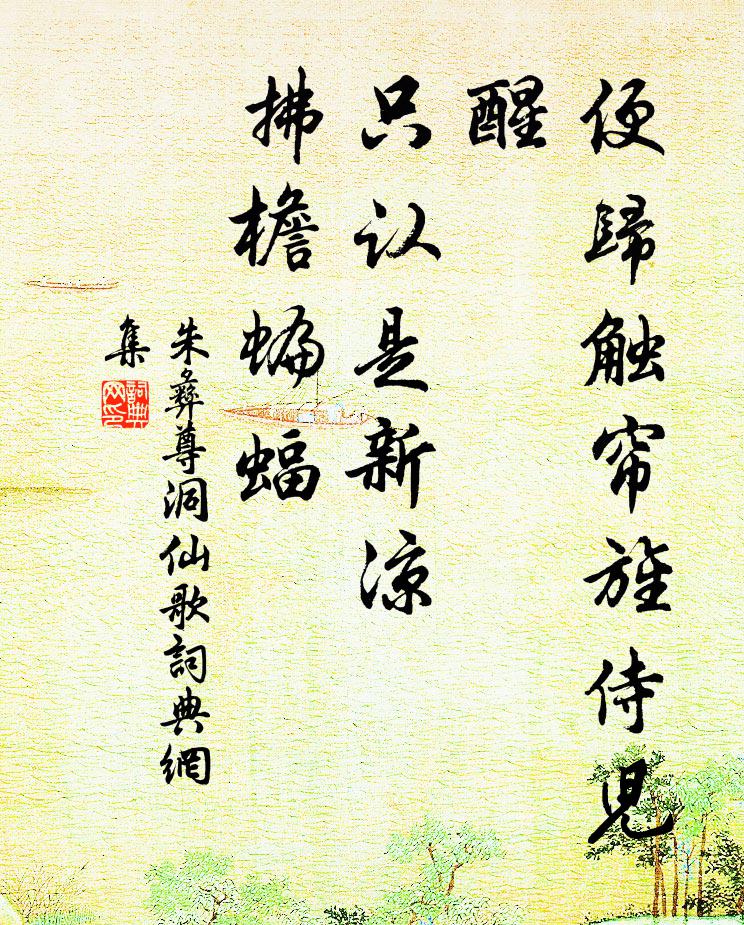 便歸触帘旌侍児
醒
只认是新凉
拂檐蝙蝠
朱彝尊洞仙歌詞典網
集
詞典网印